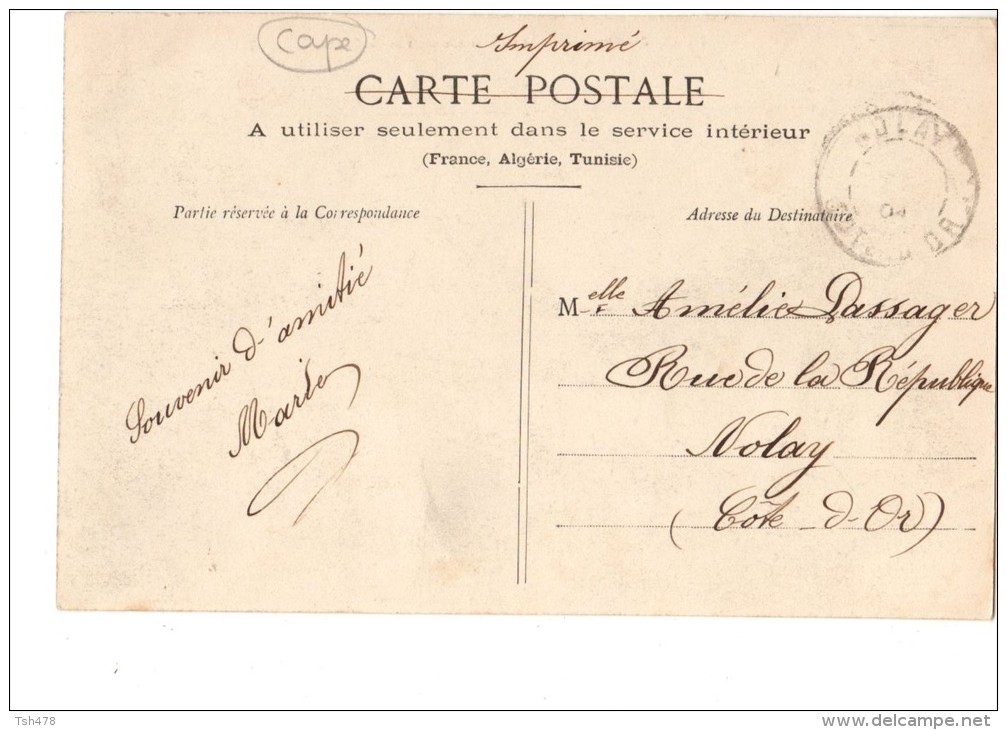 Cape
Imprimé
CARTE POSTALE
A utiliser seulement dans le service intérieur
(France, Algérie, Tunisie)
Partie réservée à la Correspondance
Souvenir d'amitié
Adresse du Destinataire
NOLAY
04
CÔTE D'OR
Melle Amélie Passager
Rue de la République
Nolay
(Côte-d-Or)
Tsh478
www.delcampe.net